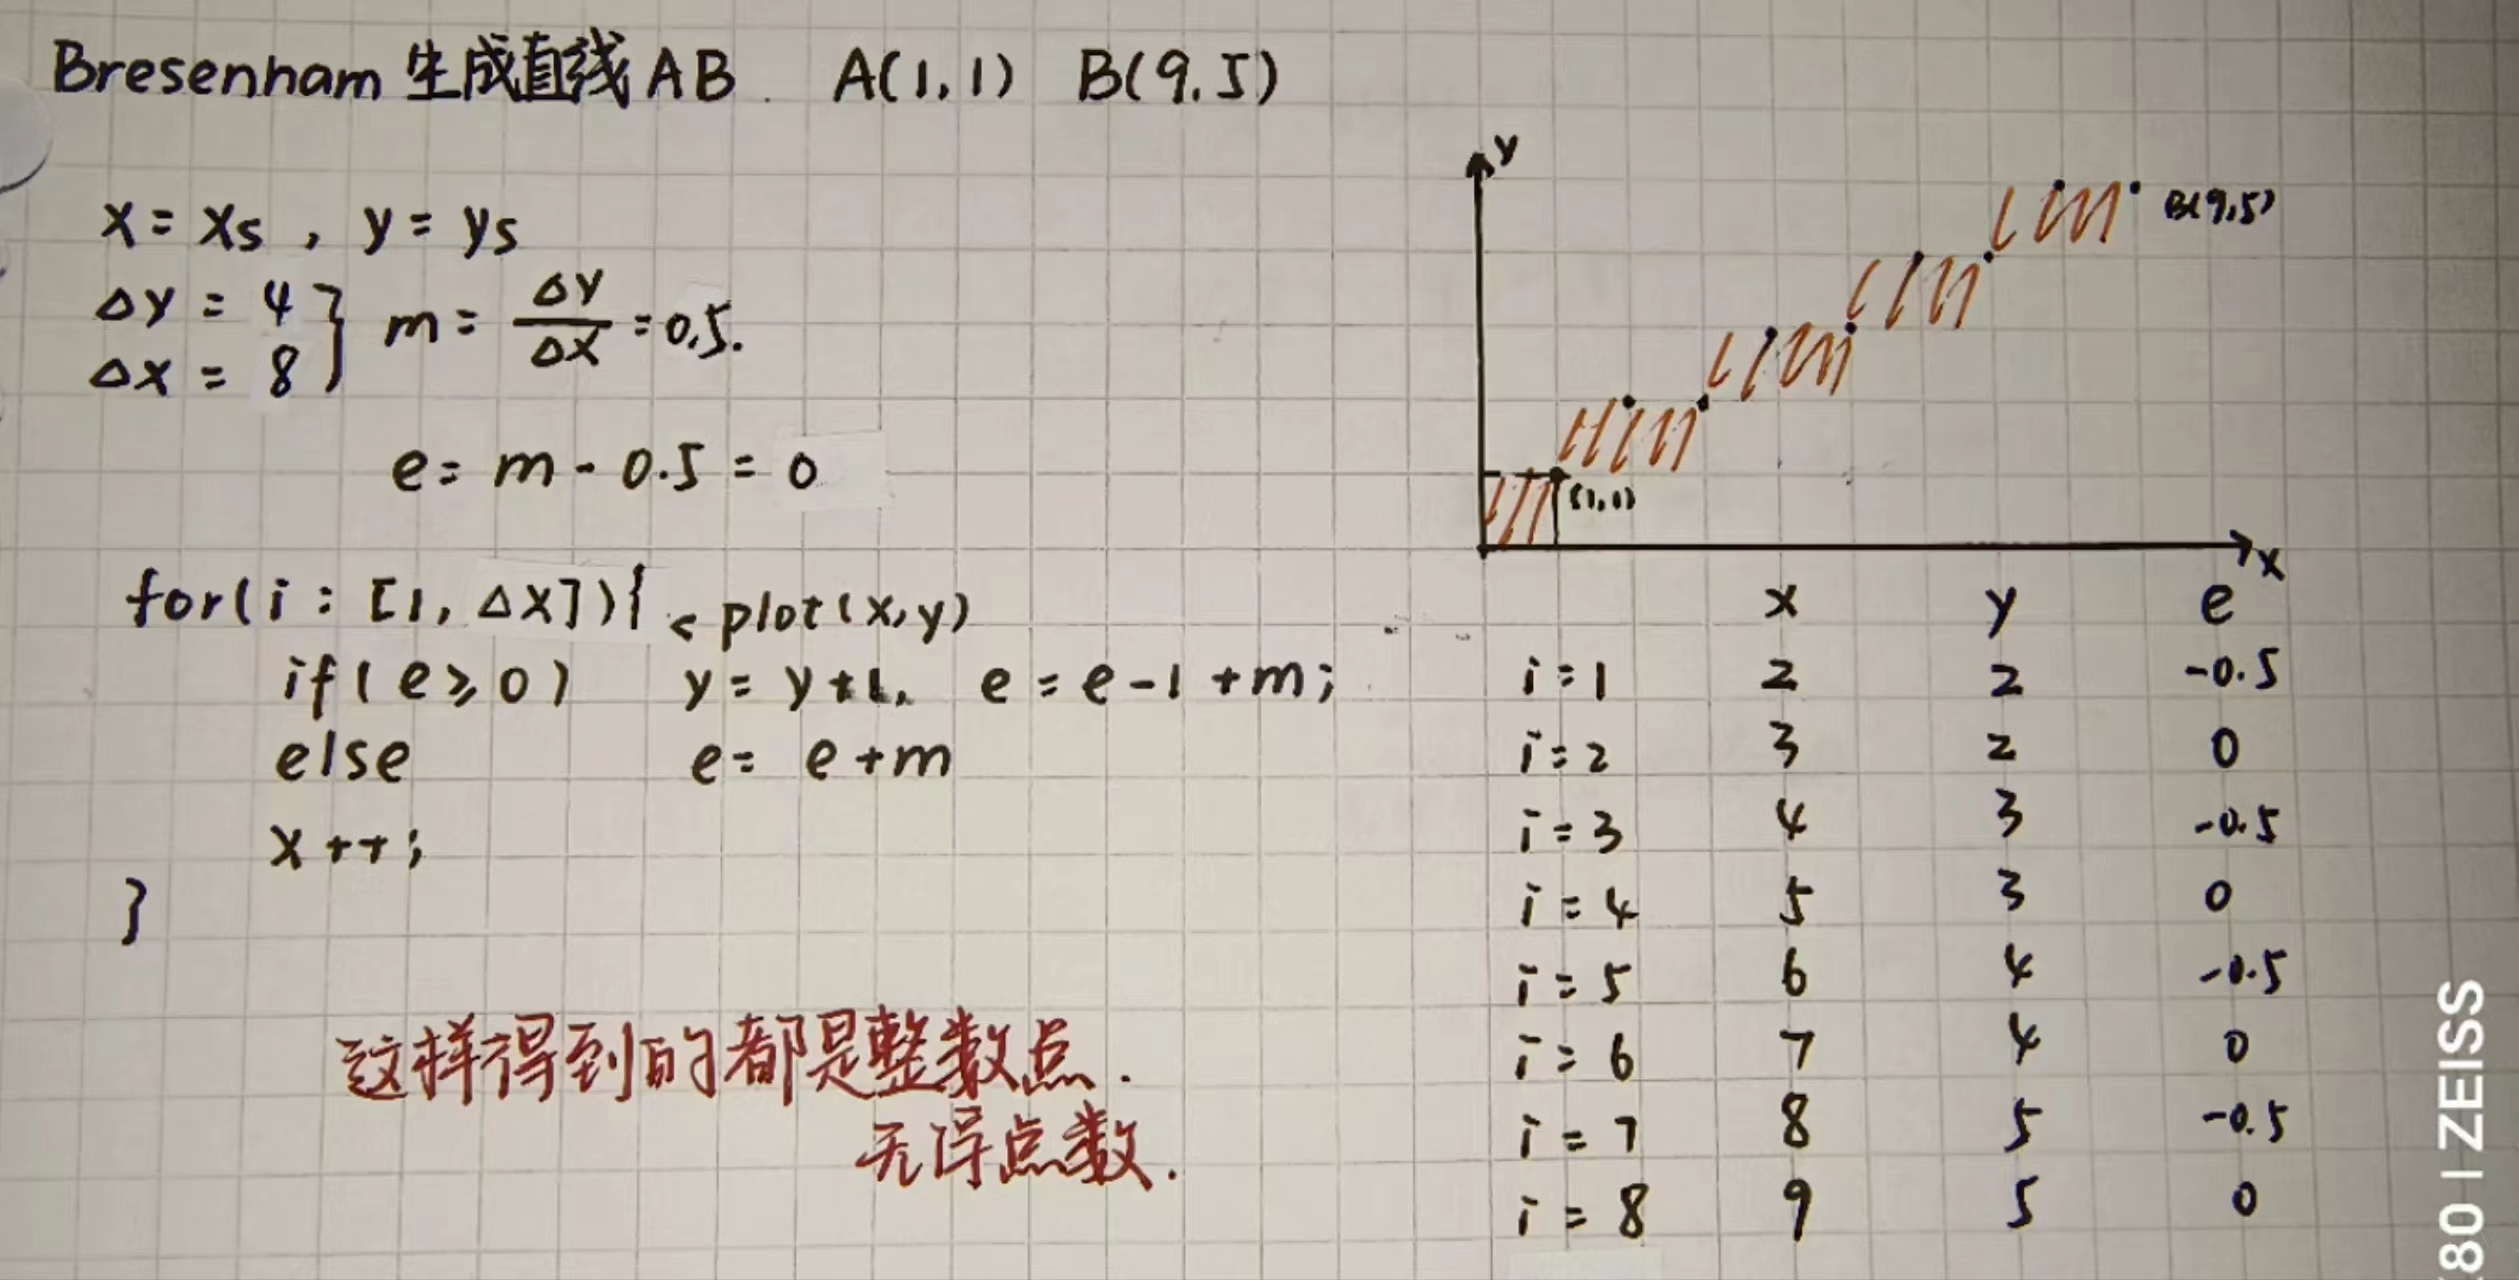 Bresenham 生成直线AB. A(1,1) B(9.5)
x = xs , y = ys
ΔY = 4
ΔX = 8
} m = ΔY/ΔX = 0.5.
e = m - 0.5 = 0
for(i : [1, ΔX]){ < plot(x,y)
if( e ≥ 0 ) y = y+1, e = e-1+m;
else e = e+m
x++;
}
这样得到的都是整数点.
无浮点数.
Y
B(9,5)
(1,1)
X
x y e
i=1 2 2 -0.5
i=2 3 2 0
i=3 4 3 -0.5
i=4 5 3 0
i=5 6 4 -0.5
i=6 7 4 0
i=7 8 5 -0.5
i=8 9 5 0
80 | ZEISS